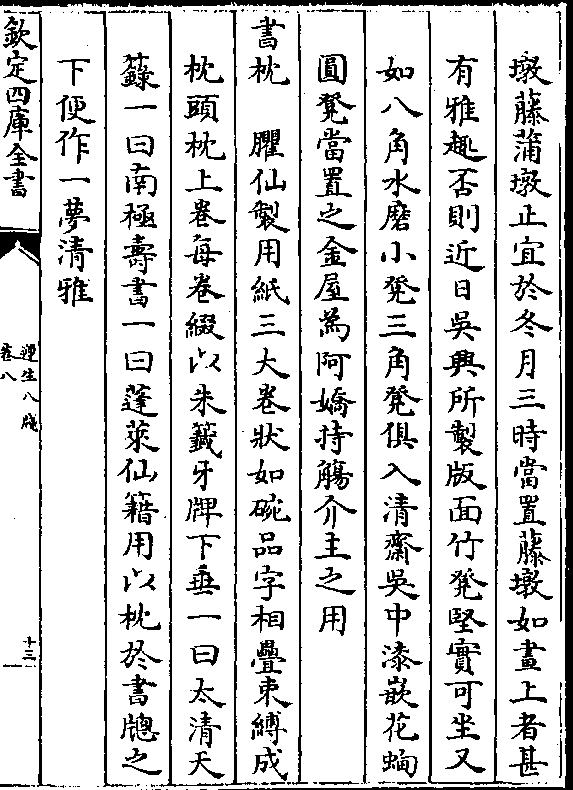 墩藤蒲墩止宜於冬月三時當置藤墩如畫上者甚
有雅趣否則近日吳興所製版面竹凳堅實可坐又
如八角水磨小凳三角凳俱入清齋吳中漆嵌花蜔
圓凳當置之金屋為阿嬌持觴介主之用
書枕 臞仙製用紙三大卷狀如碗品字相疊束縛成
枕頭枕上卷每卷綴以朱籤牙牌下垂一曰太清天
籙一曰南極壽書一曰蓬萊仙籍用以枕於書牕之
下便作一夢清雅
欽定四庫全書
遵生八牋
卷八
十三